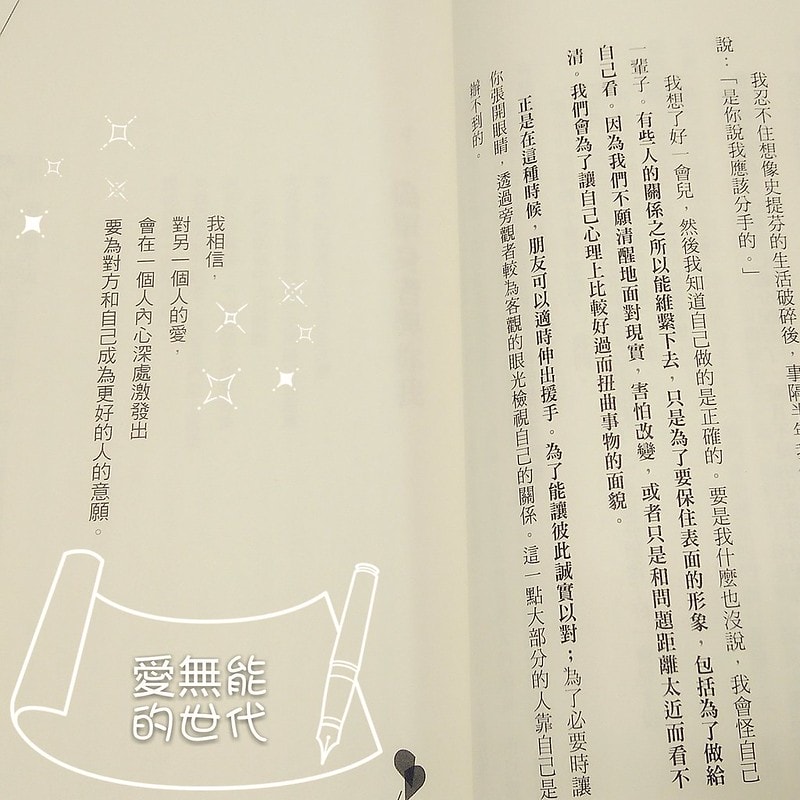 我忍不住想像史提芬的生活破碎後，事隔半年
說：「是你說我應該分手的。」
我想了好一會兒，然後我知道自己做的是正確的。要是我什麼也沒說，我會怪自己
一輩子。有些人的關係之所以能維繫下去，只是為了要保住表面的形象，包括為了做給
自己看。因為我們不願清醒地面對現實，害怕改變，或者只是和問題距離太近而看不
清。我們會為了讓自己心理上比較好過而扭曲事物的面貌。
正是在這種時候，朋友可以適時伸出援手。為了能讓彼此誠實以對；為了必要時讓
你張開眼睛，透過旁觀者較為客觀的眼光檢視自己的關係。這一點大部分的人靠自己是
辦不到的。
我相信，
對另一個人的愛，
會在一個人內心深處激發出
要為對方和自己成為更好的人的意願。
愛無能
的世代